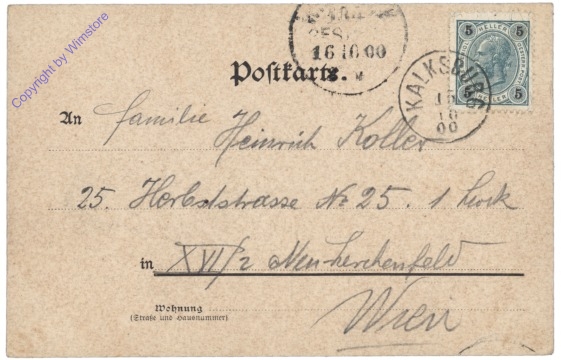 Copyright by Wimstore
16 10 00
5 HELLER 5
5 HELLER 5
KALKSBURG
15
10
00
Postkarte.
An Familie
Heinrich Koller
25. Herbststrasse No 25. 1 Stock
in XVI/2 Neulerchenfeld
Wien
Wohnung
(Straße und Hausnummer)